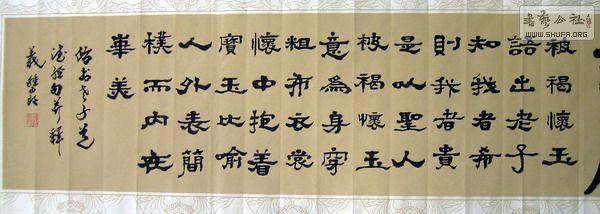 書藝公社
WWW.SHUFA.ORG
被褐懷玉
語出老子
知我者希
則我者貴
是以聖人
被褐懷玉
意為身穿
粗布衣裳
懷中抱着
寶玉比喻
人外表簡
樸而內在
華美
書老子道
德經句并釋
義